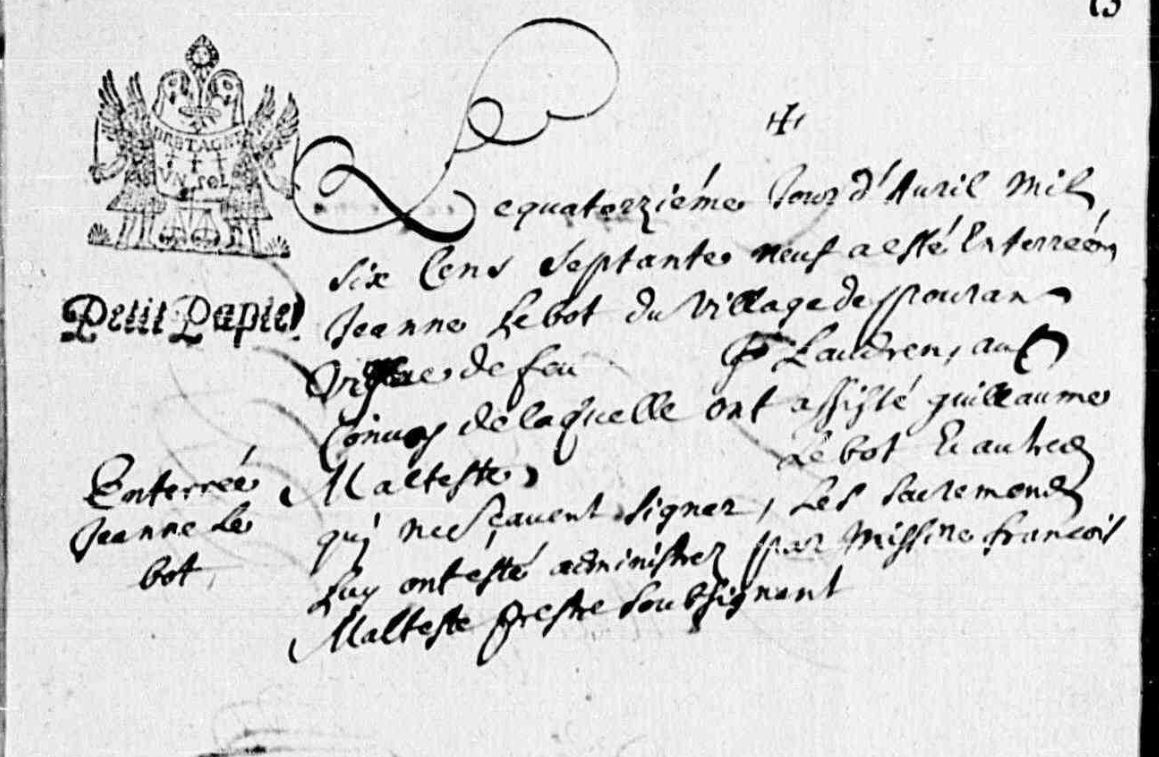 13
BRETAGNE
VN SOL
Petit Papier.
Le quatorziéme Jour d'Auril Mil
Six Cens Septante neuf a esté Enterreé
Jeanne Le bot du Village de
de feu Laudren, au
Conuoy de laquelle ont assisté guillaume
Malteste Le bot Et autres
quj ne sçauent signer, Les sacremens
Luy ont esté administrez par Missire françois
Malteste prestre soubsignant
Enterreé
Jeanne Le
bot,